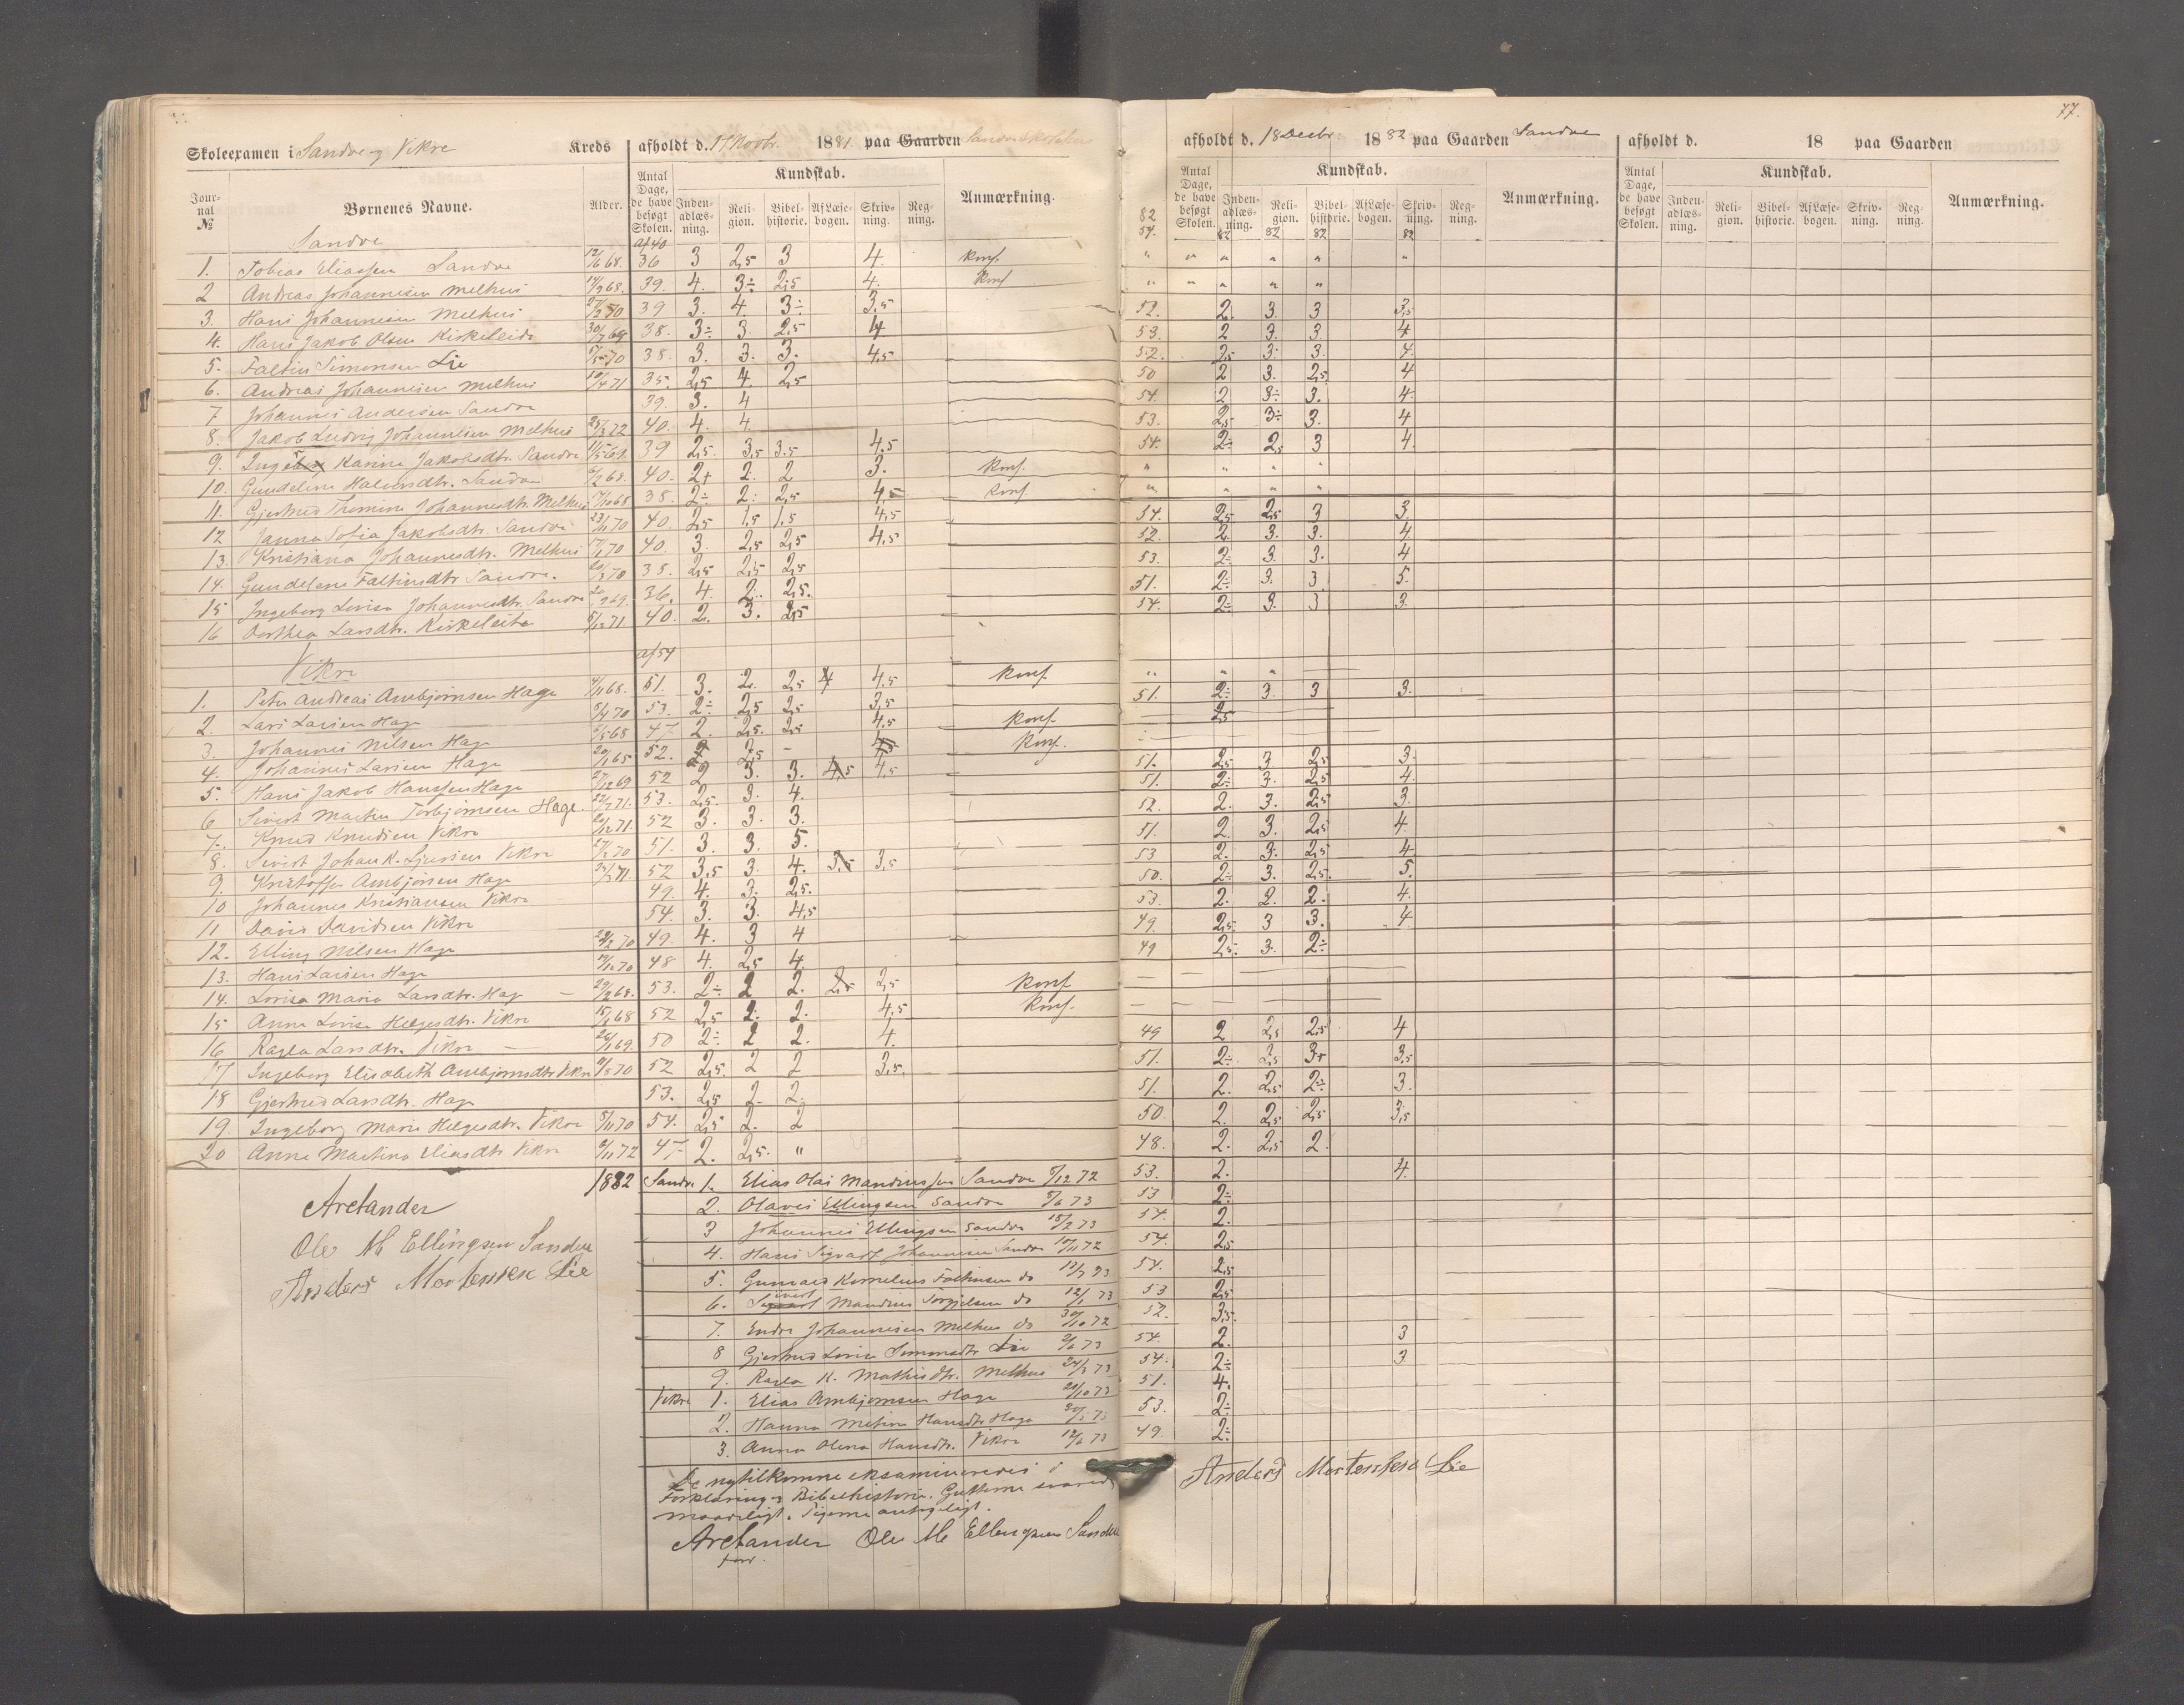 77.
Skoleexamen i Sandve og Vikre Kreds afholdt d. 17 Novbr. 1881 paa Gaarden Sandve Skolehus
afholdt d. 18 Decbr. 1882 paa Gaarden Sandve
afholdt d. 18 paa Gaarden
Journal № Børnenes Navne. Alder. Antal Dage, de have besøgt Skolen. Kundskab. Indenadlæsning. Religion. Bibelhistorie. Af Læsebogen. Skrivning. Regning. Anmærkning.
Antal Dage, de have besøgt Skolen. Kundskab. Indenadlæsning. Religion. Bibelhistorie. Af Læsebogen. Skrivning. Regning. Anmærkning.
Antal Dage, de have besøgt Skolen. Kundskab. Indenadlæsning. Religion. Bibelhistorie. Af Læsebogen. Skrivning. Regning. Anmærkning.
82 54. 82 82 82 82
Sandve af 40
1. Tobias Eliassen Sandve 12/6 68. 36 3 2,5 3 4. Konf. " " " " " "
2 Andreas Johannesen Melhus 68. 39. 4. 3÷ 2,5 4. Konf " " " " "
3. Hans Johannesen Melhus 27/2 70 39 3. 4. 3÷ 3,5 52. 2. 3. 3 3,5
4. Hans Jakob Olsen Kirkeleite 30/7 69 38. 3÷ 3. 2,5 4 53. 2 3. 3. 4
5. Faltin Simonsen Lie 70 38. 3. 3. 3. 4,5 52. 2,5 3. 3. 4.
6. Andreas Johannesen Melhus 10/4 71 35. 2,5 4. 2,5 50 2 3. 2,5 4
7 Johannes Andersen Sandve 39. 3. 4 54. 2 3÷ 3. 4.
8. Jakob Ludvig Johannesen Melhus 25/3 72 40. 4. 4. 53. 2,5 3÷ 3. 4
9. Karine Jakobsdtr. Sandve 39 2,5. 3,5 3.5 4,5 54. 2÷ 2,5 3 4.
10. Gundeline Halvorsdtr. Sandve 68. 40. 2+ 2. 2 3. Konf. " " " "
11. Gjertrud Tomine Johannesdtr. Melhus 68 38. 2÷ 2. 2,5 4,5 Konf. " " " "
12 Janna Sofia Jakobsdtr. Sandve 23/11 70 40. 2,5 1,5 1,5 4,5 54. 2,5 2,5 3 3.
13. Kristiana Johannesdtr. Melhus 17/1 70 40. 3. 2,5 2,5 4,5 52. 2. 3. 3. 4
14. Gundelene Faltinsdtr Sandve. 70 38. 2,5 2,5 2,5 53. 2÷ 3. 3. 4
15 Ingeborg Lovisa Johannesdtr. Sandve 69. 36. 4. 2. 2,5. 51. 2÷ 3. 3 5.
16 Dorthea Larsdtr. Kirkeleite 5/12 71 40. 2. 3. 2,5 54. 2÷ 3. 3 3.
Vikre af 54
1. Peter Andreas Ambjørnsen Hage 4/11 68. 51. 3. 2. 2,5 4 4,5 Konf. " " "
2. Lars Larsen Hage 5/4 70 53. 2÷ 2,5 2,5 3,5 51. 2÷ 3. 3 3.
3. Johannes Nilsen Hage 68 47 2. 2,5. 2,5 4,5 Konf. 2,5
4. Johannes Larsen Hage 20/1 65 52. 2 2,5 - 4,5 Konf.
5. Hans Jakob Hanssen Hage 27/12 69 52 2 3. 3. 4,5 4,5 51. 2,5 3. 2,5 3.
6 Sivert Martin Torbjørnsen Hage. 22/7 71. 53. 2,5. 3. 4. 51. 2÷ 3. 2,5 4.
7. Knud Knudsen Vikre 20/12 71. 52 3. 3. 3. 52. 2. 3. 2,5 3.
8. Sivert Johan K. Sjursen Vikre 27/2 70 51. 3. 3. 5. 51. 2 3. 2,5 4.
9. Kristoffer Ambjørnsen Hage 71. 52 3,5 3. 4. 3,5 3,5 53 2. 3. 2,5 4.
10 Johannes Kristiansen Vikre 49. 4. 3. 2,5. 50. 2÷ 3. 2,5. 5.
11 David Davidsen Vikre 54. 3. 3. 4,5 53. 2. 2. 2. 4.
12. Elling Nilsen Hage 70 49. 4. 3 4 49. 2,5 3 3. 4.
13. Hans Larsen Hage 70 48 4. 2,5 4. 49 2,5. 3. 2÷
14. Lovisa Maria Larsdtr. Hage 29/2 68. 53. 2÷ 2 2. 2,5 2,5 Konf
15 Anna Lovisa Helgesdtr. Vikre 15/1 68 52 2,5 2. 2. 4,5 Konf.
16 Ragla Larsdtr. Vikre 69. 50 2÷ 2 2. 4. 49 2 2,5 2,5 4
17 Ingeborg Elisabeth Ambjørnsdtr Vikre 70 52 2,5. 2 2 3,5. 51. 2÷. 2,5 3+ 3,5
18 Gjertrud Larsdtr. Hage 53. 2,5 2. 2. 51. 2. 2,5 2÷ 3.
19. Ingeborg Marie Helgesdtr. Vikre 8/11 70 54. 2,5 2. 2 50 2. 2,5 2,5 3,5
20 Anne Martine Eliasdtr Vikre 6/11 72 47 2. 2,5. " 48. 2. 2,5 2.
1882 Sandve 1. Elias Olai Mandiussen Sandve 5/12 72 53. 2. 4.
2. Olavis Ellingsen Sandve 8/6 73 53 2÷
3 Johannes Ellingsen Sandve 18/2 73 54. 2.
4. Hans Sigvart Johannesen Sandve 10/11 72 54. 2,5
5. Gunvald Kornelius Faltinsen do 13/3 73 54. 2,5
6. Sivert Mandius Torgjelsen do 12/1 73 53 2,5
7. Endre Johannesen Melhus do 30/10 72 52. 3,5.
8 Gjertrud Lovise Simonsdtr Lie 2/6 73 54. 2. 3
9. Ragla K. Mathisdtr. Melhus 24/3 73 54. 2÷ 3
Vikre 1. Elias Ambjørnsen Hage 20/10 73 51. 4.
2. Hanna Metine Hansdtr Hage 73 53. 2÷
3. Anna Olena Hansdtr. Vikre 12/6 73 49. 2÷
Arctander
Ole M Ellingsen Sandve
Anders Mortensen Lie
De nytilkomne eksamineredes i
Forklaring og Bibelhistorie. Gutterne svarede
maadeligt. Pigerne antageligt.
Arctander Ole M Ellingsen Sandve
Anders Mortensen Lie